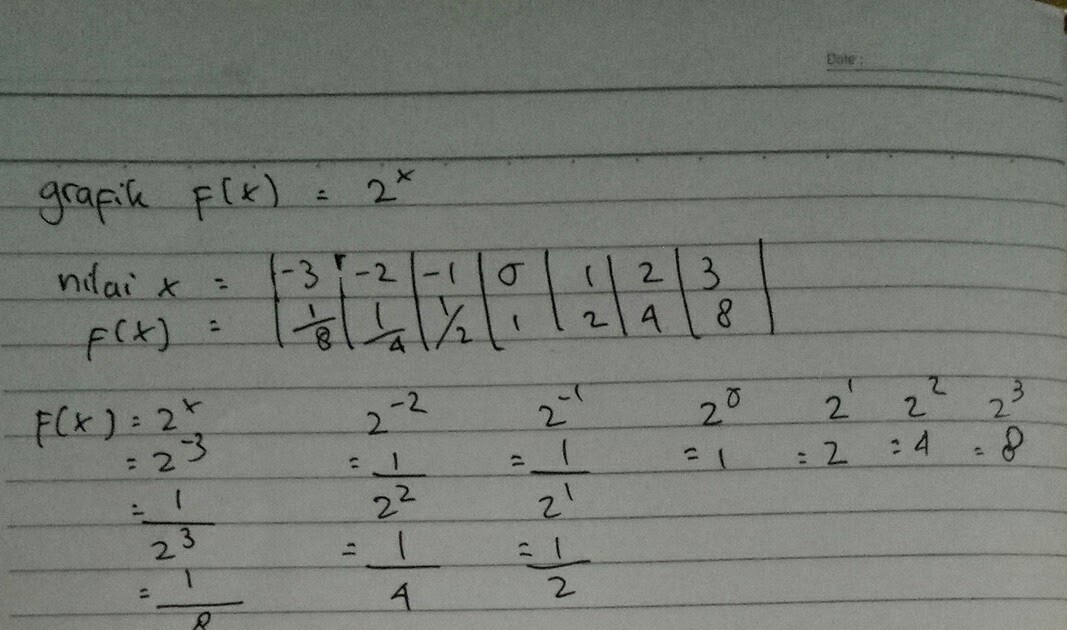 Date :
grafik F(x) = 2^x
nilai x = | -3 | -2 | -1 | 0 | 1 | 2 | 3 |
F(x) = | 1/8 | 1/4 | 1/2 | 1 | 2 | 4 | 8 |
F(x) = 2^x 2^-2 2^-1 2^0 2^1 2^2 2^3
= 2^-3 = 1/2^2 = 1/2^1 = 1 = 2 = 4 = 8
= 1/2^3 = 1/4 = 1/2
= 1/8